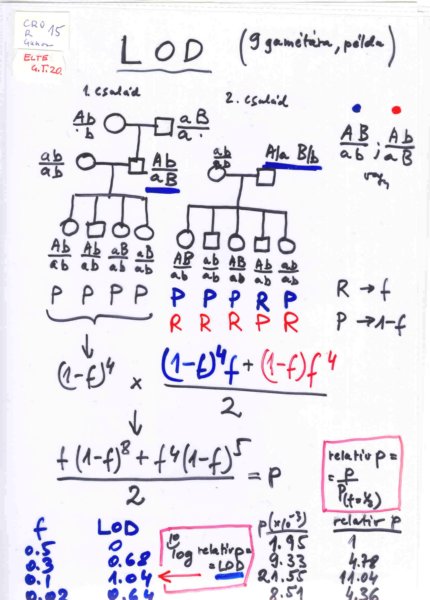 CRO 15
R
ELTE
G.T.20.
LOD (9 gamétára, példa)
1. család
2. család
Ab aB
b a
ab Ab
ab aB
ab A/a B/b
ab
AB ; Ab
ab aB
vagy
Ab Ab aB aB
ab ab ab ab
AB ab AB Ab ab
ab ab ab ab ab
P P P P
P P P R P
R R R P R
R → f
P → 1-f
(1-f)⁴ × (1-f)⁴f + (1-f)f⁴
2
f(1-f)⁸ + f⁴(1-f)⁵ = P
2
relatív p =
= p
P(f=½)
f LOD p(×10⁻³) relatív p
0.5 0 1.95 1
0.3 0.68 9.33 4.78
0.1 1.04 21.55 11.04
0.02 0.64 8.51 4.36
10
log relatív p =
= LOD